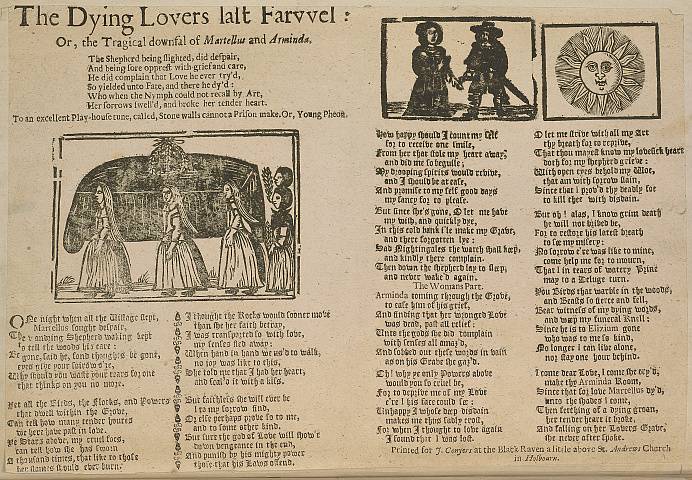 The Dying Lovers last Farwel:
Or, the Tragical downfal of Martellus and Arminda.
The Shepherd being slighted, did despair,
And being sore opprest with grief and care,
He did complain that Love he ever try'd,
So yielded unto Fate, and there he dy'd:
Who when the Nymph could not recall by Art,
Her sorrows swell'd, and broke her tender heart.
To an excellent Play-house tune, called, Stone walls cannot a Prison make, Or, Young Pheon.
ONe night when all the Village slept,
Martellus sought despair,
The wandring Shepherd waking kept
to tell the woods his care:
Be gone, said he, fond thoughts be gone,
eyes give your sorrows o're,
Why should you waste your tears for one
that thinks on you no more.
Yet all the Birds, the Flocks, and Powers
that dwell within the Grove,
Can tell how many tender houres
we here have past in love.
Ye Stars above, my cruel foes,
can tell how she has sworn
A thousand times, that like to those
her flames should ever burn.
I thought the Rocks would sooner move
than she her faith betray,
I was transported so with love,
my senses fled away:
When hand in hand we us'd to walk,
no joy was like to this,
She told me that I had her heart,
and seal'd it with a kiss.
But faithless she will ever be
to my sorrow find,
Or else perhaps prove so to me,
and to some other kind.
But sure the god of Love will show'r
down vengeance in the end,
And punish by his mighty power
those that his Laws offend.
How happy should I count my self
for to receive one smile,
From her that stole my heart away,
and did me so beguile;
My drooping spirits would revive,
and I should be at ease,
And promise to my self good days
my fancy for to please.
But since she's gone, O let me have
my wish, and quickly dye,
In this cold bank i'le make my Grave,
and there forgotten lye:
Sad Nightingales the watch shall keep,
and kindly there complain.
Then down the Shepherd lay to sleep,
and never wake'd again.
The Womans Part.
Arminda coming through the Grove,
to ease him of his grief,
And finding that her wronged Love
was dead, past all relief:
Unto the gods he did complain
with senses all amaz'd,
And sobbed out these words in vain
as on his Grave she gaz'd.
Oh! why ye only Powers above
would you so cruel be,
For to deprive me of my Love
e're I his face could see:
Unhappy I whose deep disdain
makes me thus sadly crost,
For when I thought to love again
I found that I was lost.
O let me strive with all my Art
thy breath for to reprive,
That thou mayest know my lovesick heart
doth for my shepherd grieve:
With open eyes behold my Woe,
that am with sorrow slain,
Since that I prov'd thy deadly foe
to kill thee with disdain.
But oh! alas, I know grim death
he will not bribed be,
For to restore his latest breath
to see my misery:
No sorrow e're was like to mine,
come help me for to mourn,
That I in tears of watery Brine
may to a Deluge turn.
You Birds that warble in the woods,
and Beasts so fierce and fell,
Bear witness of my dying words,
and weep my funeral Knell:
Since he is to Elizium gone
who was to me so kind,
No longer I can live alone,
nor stay one hour behind.
I come dear Love, I come she cry'd,
make thy Arminda Room,
Since that for love Martellus dy'd,
unto the shades I come,
Then fetching of a dying groan,
her tender heart it broke,
And falling on her Lovers Grave,
she never after spoke.
Printed for J. Conyers at the Black Raven a little above St. Andrews Church
in Holbourn.